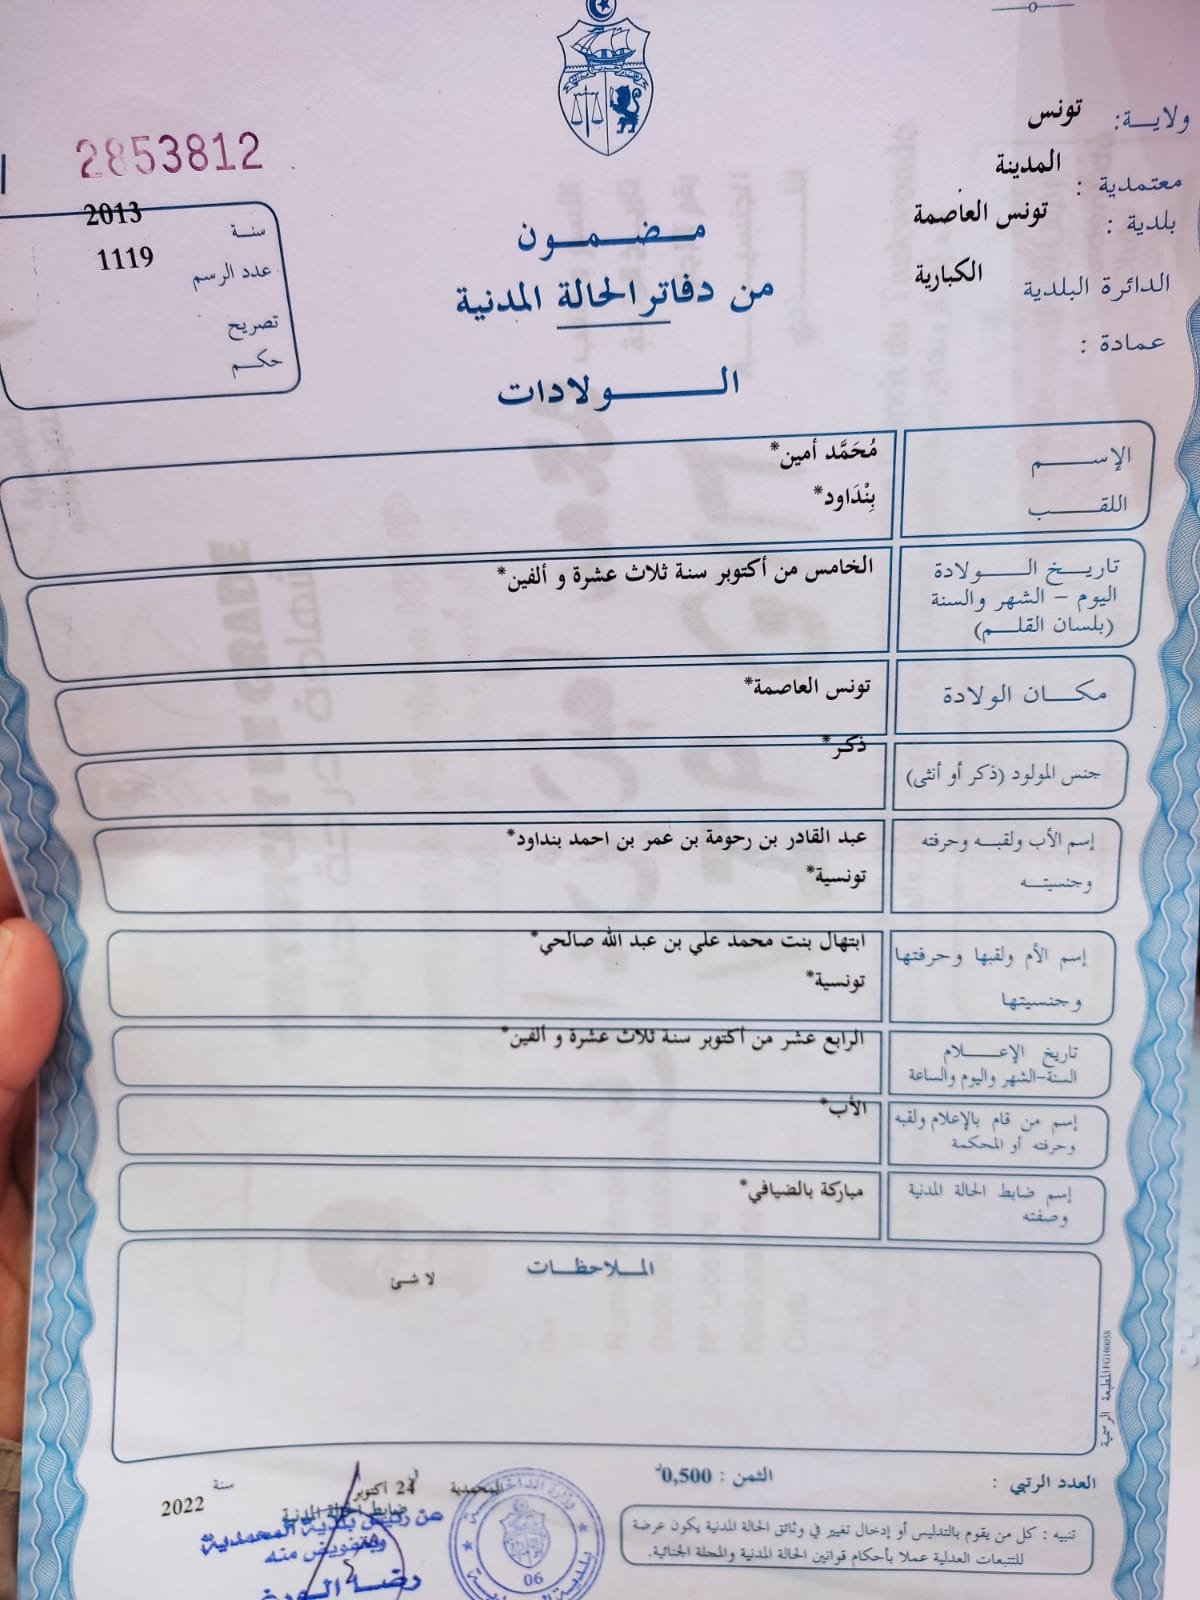 ولاية: تونس
معتمدية : المدينة
بلدية : تونس العاصمة
الدائرة البلدية الكبارية
عمادة :
2853812
سنة 2013
عدد الرسم 1119
تصريح
حكم
مضمون
من دفاتر الحالة المدنية
الولادات
الإسم مُحَمَّد أمين*
اللقب بِنْدَاود*
تاريخ الولادة الخامس من أكتوبر سنة ثلاث عشرة و ألفين*
اليوم - الشهر والسنة
(بلسان القلم)
مكان الولادة تونس العاصمة*
جنس المولود (ذكر أو أنثى) ذكر*
إسم الأب ولقبه وحرفته عبد القادر بن رحومة بن عمر بن احمد بنداود*
وجنسيته تونسية*
إسم الأم ولقبها وحرفتها ابتهال بنت محمد علي بن عبد الله صالحي*
وجنسيتها تونسية*
تاريخ الإعلام الرابع عشر من أكتوبر سنة ثلاث عشرة و ألفين*
السنة-الشهر واليوم والساعة
إسم من قام بالإعلام ولقبه الأب*
وحرفته أو المحكمة
إسم ضابط الحالة المدنية مباركة بالضيافي*
وصفته
الملاحظات
لا شئ
المطبعة الرسمية FG100058
العدد الرتبي : الثمن : 0,500
تنبيه : كل من يقوم بالتدليس أو إدخال تغيير في وثائق الحالة المدنية يكون عرضة
للتتبعات العدلية عملا بأحكام قوانين الحالة المدنية والمجلة الجنائية.
المحمدية 24 أكتوبر سنة 2022
ضابط الحالة المدنية
عن رئيس بلدية المحمدية
وبتفويض منه
وزارة الداخلية
06